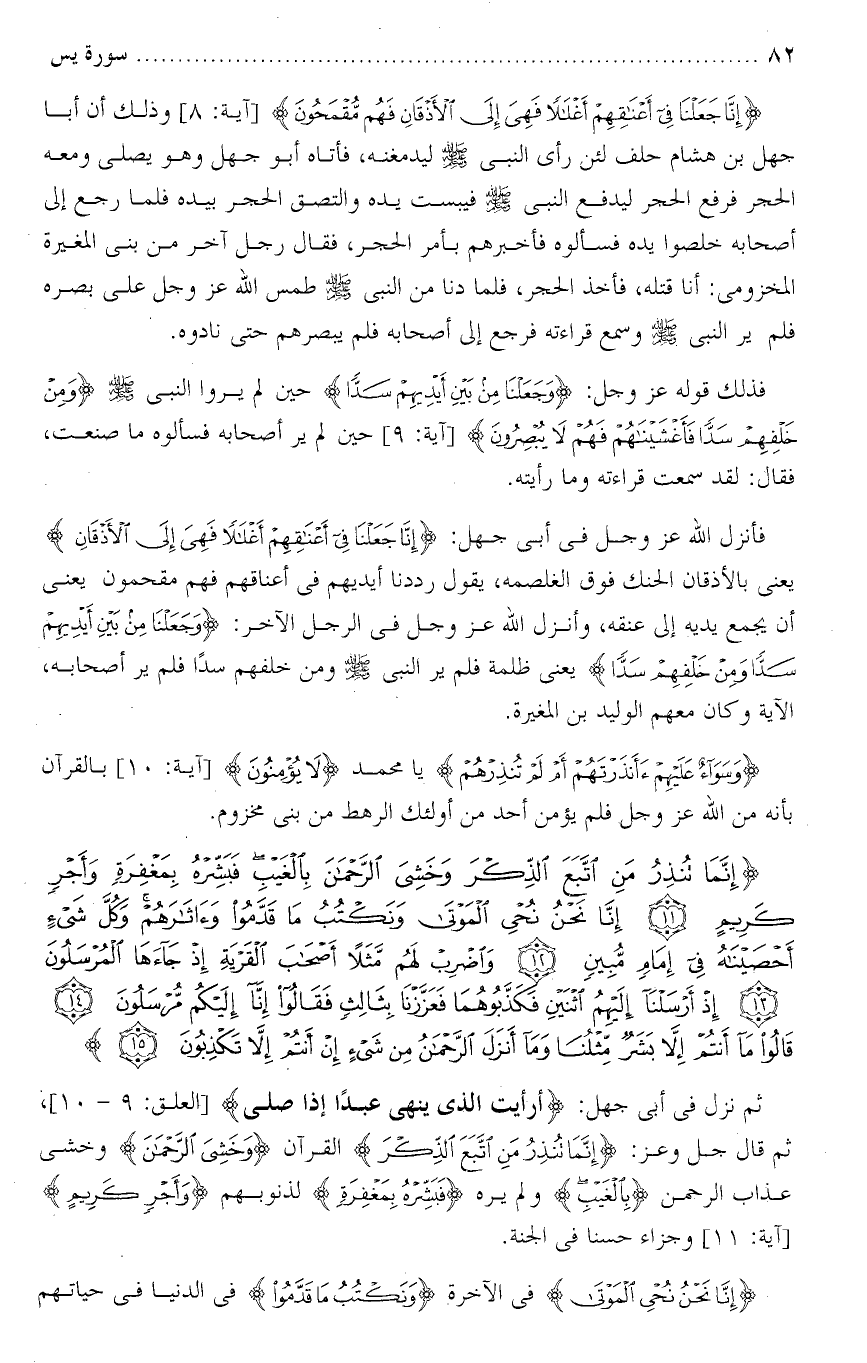 ٨٢ ................................................................ سورة يس
﴿إِنَّا جَعَلْنَا فِىٓ أَعْنَٰقِهِمْ أَغْلَٰلًا فَهِىَ إِلَى ٱلْأَذْقَانِ فَهُم مُّقْمَحُونَ﴾ [آية: ٨] وذلك أن أبا
جهل بن هشام حلف لئن رأى النبى ﷺ ليدمغنه، فأتاه أبو جهل وهو يصلى ومعه
الحجر فرفع الحجر ليدفع النبى ﷺ فيبست يده والتصق الحجر بيده فلما رجع إلى
أصحابه خلصوا يده فسألوه فأخبرهم بأمر الحجر، فقال رجل آخر من بنى المغيرة
المخزومى: أنا قتله، فأخذ الحجر، فلما دنا من النبى ﷺ طمس الله عز وجل على بصره
فلم ير النبى ﷺ وسمع قراءته فرجع إلى أصحابه فلم يبصرهم حتى نادوه.
فذلك قوله عز وجل: ﴿وَجَعَلْنَا مِنۢ بَيْنِ أَيْدِيهِمْ سَدًّا﴾ حين لم يروا النبى ﷺ ﴿وَمِنْ
خَلْفِهِمْ سَدًّا فَأَغْشَيْنَٰهُمْ فَهُمْ لَا يُبْصِرُونَ﴾ [آية: ٩] حين لم ير أصحابه فسألوه ما صنعت،
فقال: لقد سمعت قراءته وما رأيته.
فأنزل الله عز وجل فى أبى جهل: ﴿إِنَّا جَعَلْنَا فِىٓ أَعْنَٰقِهِمْ أَغْلَٰلًا فَهِىَ إِلَى ٱلْأَذْقَانِ﴾
يعنى بالأذقان الحنك فوق الغلصمه، يقول رددنا أيديهم فى أعناقهم فهم مقمحمون يعنى
أن يجمع يديه إلى عنقه، وأنزل الله عز وجل فى الرجل الآخر: ﴿وَجَعَلْنَا مِنۢ بَيْنِ أَيْدِيهِمْ
سَدًّا وَمِنْ خَلْفِهِمْ سَدًّا﴾ يعنى ظلمة فلم ير النبى ﷺ ومن خلفهم سدًا فلم ير أصحابه،
الآية وكان معهم الوليد بن المغيرة.
﴿وَسَوَآءٌ عَلَيْهِمْ ءَأَنذَرْتَهُمْ أَمْ لَمْ تُنذِرْهُمْ﴾ يا محمد ﴿لَا يُؤْمِنُونَ﴾ [آية: ١٠] بالقرآن
بأنه من الله عز وجل فلم يؤمن أحد من أولئك الرهط من بنى مخزوم.
﴿إِنَّمَا تُنذِرُ مَنِ ٱتَّبَعَ ٱلذِّكْرَ وَخَشِىَ ٱلرَّحْمَٰنَ بِٱلْغَيْبِ ۖ فَبَشِّرْهُ بِمَغْفِرَةٍ وَأَجْرٍ
كَرِيمٍ ﴿١١﴾ إِنَّا نَحْنُ نُحْىِ ٱلْمَوْتَىٰ وَنَكْتُبُ مَا قَدَّمُوا۟ وَءَاثَٰرَهُمْ ۚ وَكُلَّ شَىْءٍ
أَحْصَيْنَٰهُ فِىٓ إِمَامٍ مُّبِينٍ ﴿١٢﴾ وَٱضْرِبْ لَهُم مَّثَلًا أَصْحَٰبَ ٱلْقَرْيَةِ إِذْ جَآءَهَا ٱلْمُرْسَلُونَ
﴿١٣﴾ إِذْ أَرْسَلْنَآ إِلَيْهِمُ ٱثْنَيْنِ فَكَذَّبُوهُمَا فَعَزَّزْنَا بِثَالِثٍ فَقَالُوٓا۟ إِنَّآ إِلَيْكُم مُّرْسَلُونَ ﴿١٤﴾
قَالُوا۟ مَآ أَنتُمْ إِلَّا بَشَرٌ مِّثْلُنَا وَمَآ أَنزَلَ ٱلرَّحْمَٰنُ مِن شَىْءٍ إِنْ أَنتُمْ إِلَّا تَكْذِبُونَ ﴿١٥﴾ ﴾
ثم نزل فى أبى جهل: ﴿أرأيت الذى ينهى عبدًا إذا صلى﴾ [العلق: ٩ - ١٠]،
ثم قال جل وعز: ﴿إِنَّمَا تُنذِرُ مَنِ ٱتَّبَعَ ٱلذِّكْرَ﴾ القرآن ﴿وَخَشِىَ ٱلرَّحْمَٰنَ﴾ وخشى
عذاب الرحمن ﴿بِٱلْغَيْبِ ۖ﴾ ولم يره ﴿فَبَشِّرْهُ بِمَغْفِرَةٍ﴾ لذنوبهم ﴿وَأَجْرٍ كَرِيمٍ﴾
[آية: ١١] وجزاء حسنا فى الجنة.
﴿إِنَّا نَحْنُ نُحْىِ ٱلْمَوْتَىٰ﴾ فى الآخرة ﴿وَنَكْتُبُ مَا قَدَّمُوا۟﴾ فى الدنيا فى حياتهم